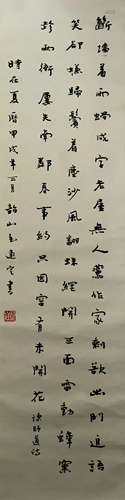 斷墻着雨蝸成字老屋無人鷰作家剩欲出門追語
笑卻嫌歸鬢着塵沙風翻蛛網開三面雷動蜂窠
趁兩衙屢失南鄰春事約只因容有未開花 陳師道詩
時在夏曆甲戌年二月韶山毛書